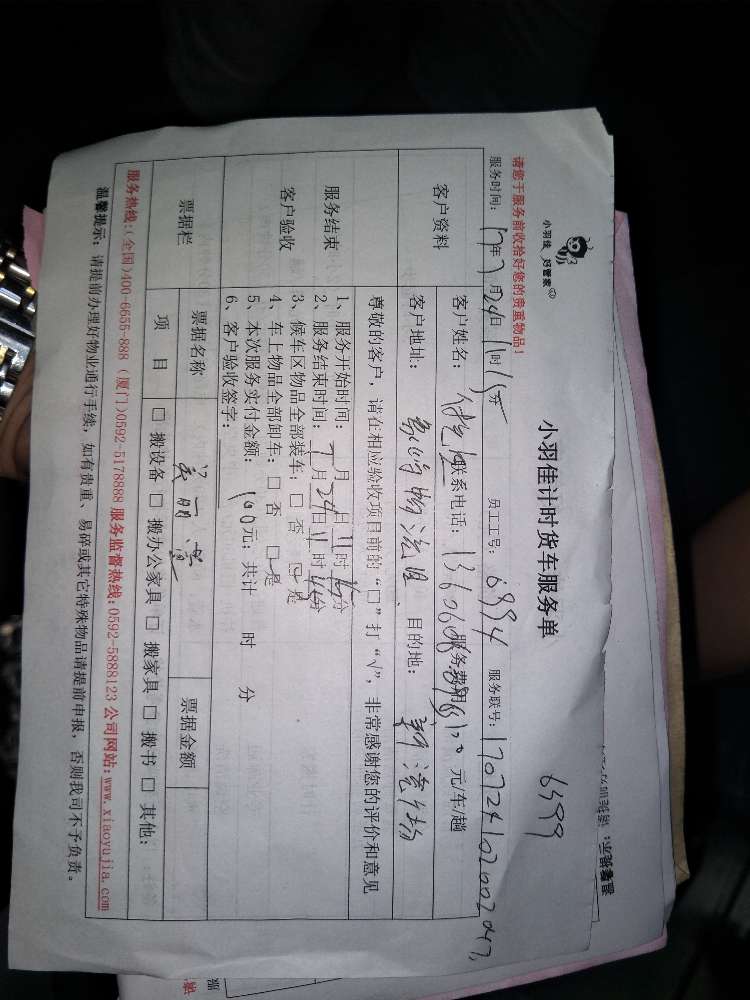 小羽佳 好管家
小羽佳计时货车服务单
6499
请您于服务前收拾好您的贵重物品！
服务时间：17年7月24日11时15分 员工工号：6994 服务联号：
客户资料
客户姓名： 联系电话： 服务费用 元/车/趟
客户地址： 目的地：
尊敬的客户，请在相应验收项目前的“□”打“√”，非常感谢您的评价和意见
服务结束
客户验收
1、服务开始时间： 月 日11时15分
2、服务结束时间：7月24日11时45分
3、候车区物品全部装车：□ 否 □ 是
4、车上物品全部卸车：□ 否 □ 是
5、本次服务实付金额：100元；共计 时 分
6、客户验收签字：
票据栏
票据名称 票据金额
项 目 □ 搬设备 □ 搬办公家具 □ 搬家具 □ 搬书 □ 其他：
服务热线：(全国)400-6655-888 (厦门)0592-5178888 服务监督热线：0592-5888123 公司网站：www.xiaoyujia.com
温馨提示：请提前办理好物业通行手续，如有贵重、易碎或其它特殊物品请提前申报，否则我司不予负责。